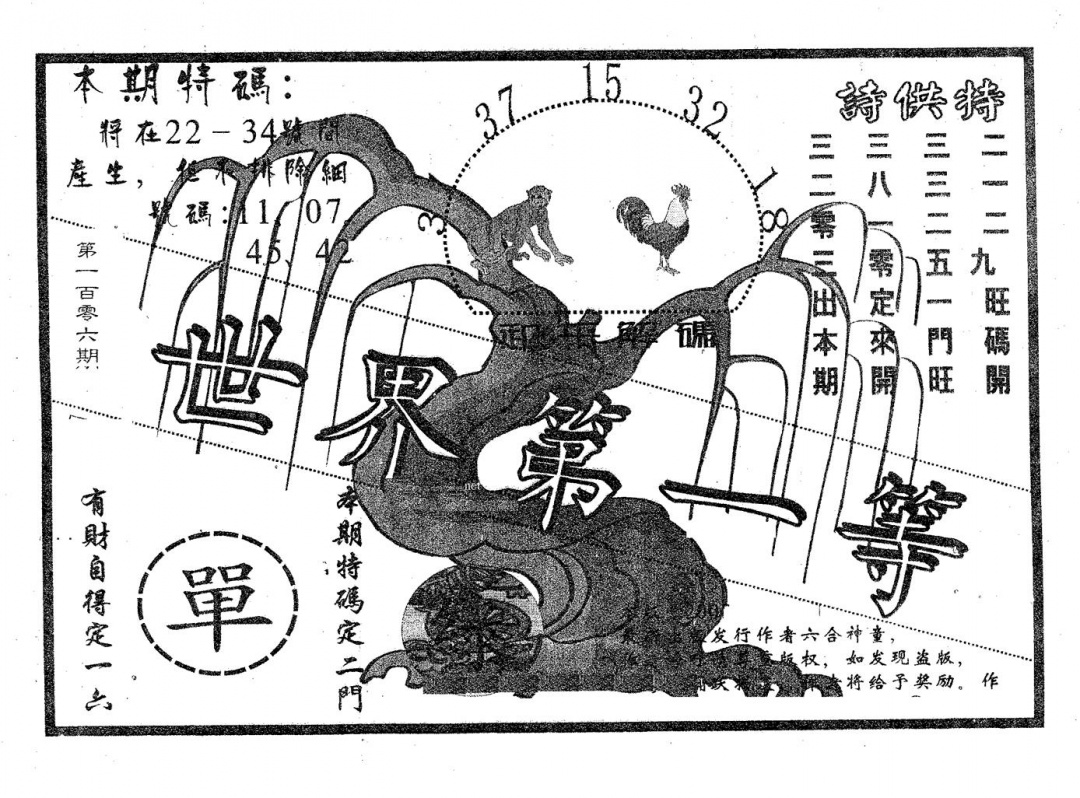 本期特碼：
將在22－34號間
產生，但不排除細
號碼：11、07、
45、42
第一百零六期
37
15
32
18
特供詩
二一二九旺碼開
三三二五一門旺
三八一零定來開
三二零三出本期
解碼
世界第一等
有財自得定一六
單
本期特碼定二門
发行作者六合神童，
版权，如发现盗版，
将给予奖励。作